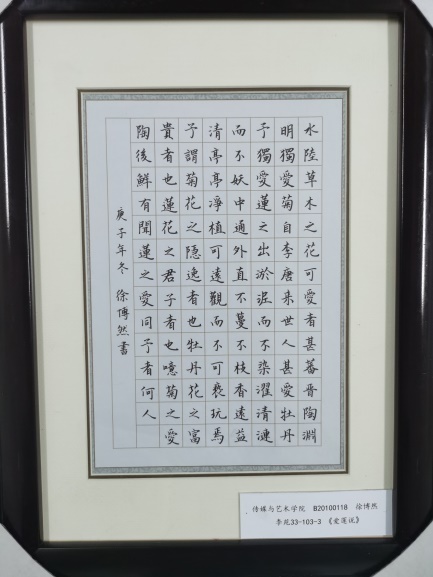 水陸草木之花可愛者甚蕃晉陶淵
明獨愛菊自李唐来世人甚愛牡丹
予獨愛蓮之出淤泥而不染濯清漣
而不妖中通外直不蔓不枝香遠益
清亭亭凈植可遠觀而不可褻玩焉
予謂菊花之隱逸者也牡丹花之富
貴者也蓮花之君子者也噫菊之愛
陶後鮮有聞蓮之愛同予者何人
庚子年冬 徐博然書
传媒与艺术学院 B20100118 徐博然
李苑33-103-3 《爱莲说》